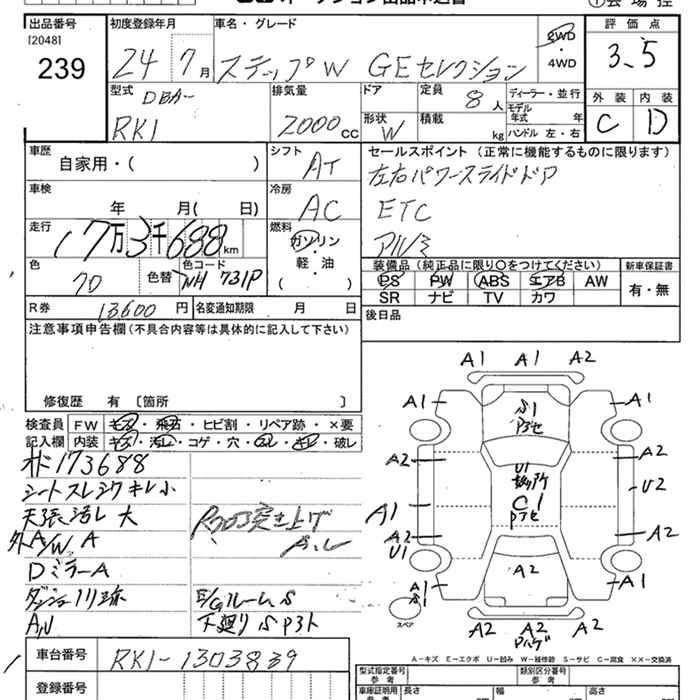 出品番号
[2048]
239
初度登録年月
24 7月
車名・グレード
ステップW GEセレクション
2WD
・
4WD
評価点
3.5
外装
C
内装
D
型式
DBA-
RK1
排気量
2000cc
ドア
形状
W
定員
8人
積載
kg
ディーラー・並行
モデル年式 年
ハンドル 左・右
車歴
自家用・( )
シフト
AT
セールスポイント (正常に機能するものに限ります)
左右パワースライドドア
ETC
アルミ
車検
年 月( 日)
冷房
AC
走行
17万3千688km
燃料
ガソリン
軽・油
( )
色
色替
色コード
NH 731P
装備品 (純正品に限り〇をつけてください)
PS PW ABS エアB AW
SR ナビ TV カワ
新車保証書
有・無
R券
13,600円
名変通知期限 月 日
後日品
注意事項申告欄(不具合内容等は具体的に記入して下さい)
修復歴 有 [箇所 ]
検査員
記入欄
FW キズ・飛石・ヒビ割・リペア跡・×要
内装 キズ・汚レ・コゲ・穴・スレ・キレ・破レ
173688
シートスレシワキレ小
天張汚レ 大
外A/W A
DミラーA
E/Gルーム S
下廻りS P3ト
A1 A1 A2
A1 A1
S1
A2 A2
U1
U2
C1
A1
A2 A2
U1
A2
A1 A1
S1
スペア
A2 A2 A2
A-キズ E-エクボ U-凹み W-補修跡 S-サビ C-腐食 ××-交換済
車台番号
RK1-1303839
登録番号
型式指定番号
参考
類別区分番号
参考
車庫証明用
参考
長さ
幅
高さ